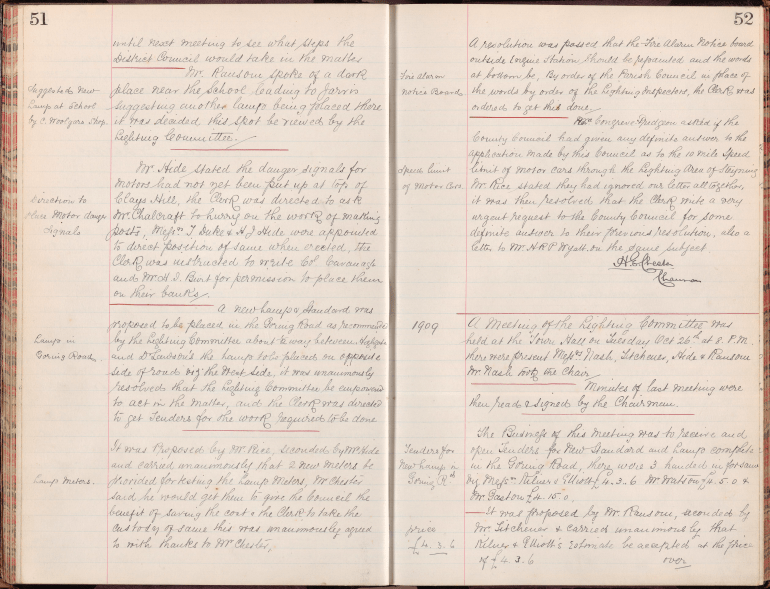 51
until next meeting to see what steps the
District Council would take in the matter
Mr. Ransom spoke of a dark
Suggested New
Lamp at School
by C. Woolgars Shop
place near the School leading to
suggesting another lamp being placed there
it was decided this spot be viewed by the
Lighting Committee.
Mr. Hide stated the danger signals for
Motors had not yet been put up at top of
Clays Hill, the Clerk was directed to ask
Direction to
place Motor danger
Signals
Mr. Chalcraft to hurry on the work of making
posts, Messrs. T. Duke & A J Hide were appointed
to direct position of same when erected, the
Clerk was instructed to write Col. Cavanagh
and Mr. H. I. Burt for permission to place them
on their banks.
A new Lamp & Standard was
proposed to be placed in the Goring Road as recommended
Lamp in
Goring Road
by the Lighting Committee about ½ way between
and the Lamp to be placed on opposite
side of road viz the West side, it was unanimously
resolved that the Lighting Committee be empowered
to act in the matter, and the Clerk was directed
to get Tenders for the work required to be done
It was Proposed by Mr. Rice, seconded by Mr. Hide
and carried unanimously that 2 New Meters be
Lamp Meters.
provided for testing the Lamp Meters, Mr Chester
said he would get them to give the Council the
benefit of saving the cost & the Clerk to take the
custody of same this was unanimously agreed
to with thanks to Mr Chester,
52
A resolution was passed that the Fire Alarm Notice board
outside Engine Station should be repainted and the words
Fire Alarm
Notice Board
at bottom be, By order of the Parish Council in place of
the words by order of the Lighting Inspectors, the Clerk was
ordered to get this done
Congreve Pridgeon asked if the
County Council had given any definite answer to the
application made by this Council as to the 10 mile Speed
Speed limit
of Motor Cars.
limit of motor cars through the Lighting Area of Steyning
Mr. Rice stated they had ignored our letter all together,
it was then resolved that the Clerk write a very
urgent request to the County Council for some
definite answer to their previous resolution, also a
letter to Mr. H R P Wyatt on the same subject.
Chairman
1909
A Meeting of the Lighting Committee was
held at the Town Hall on Tuesday Oct 26th at 8. P.M.
there were present Messrs. Nash, Titchener, Hide & Ransom
Mr. Nash took the Chair
Minutes of last meeting were
then read & signed by the Chairman.
The Business of this meeting was to receive and
Tenders for
New Lamp in
Goring Rd
open Tenders for New Standard and Lamp complete
in the Goring Road, there were 3 handed in for same
by Messrs. Kilner & Elliott £4. 3. 6 Mr Watson £4. 5. 0 &
Mr. Gaston £4. 15. 0.
It was proposed by Mr. Ransom, seconded by
price
£4. 3. 6
Mr. Titchener & carried unanimously that
Kilner & Elliott's Estimate be accepted at the price
of £4. 3. 6 over